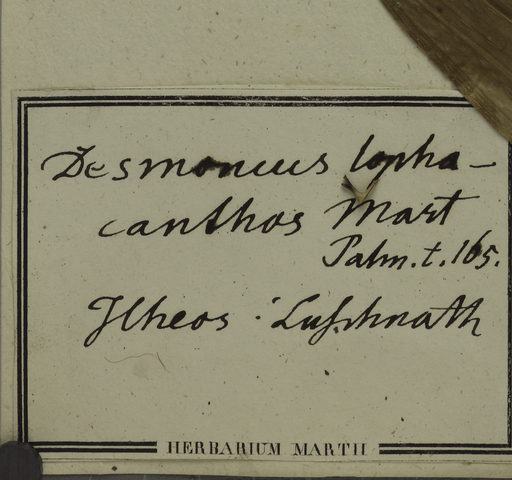 Desmoncus lopha-
canthos Mart
Palm. t. 165.
Ilheos : Luschnath
HERBARIUM MARTII